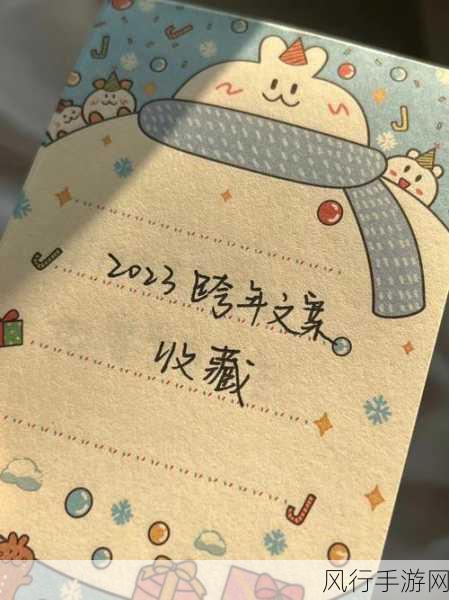 2023跨年文案
收藏
风行手游网